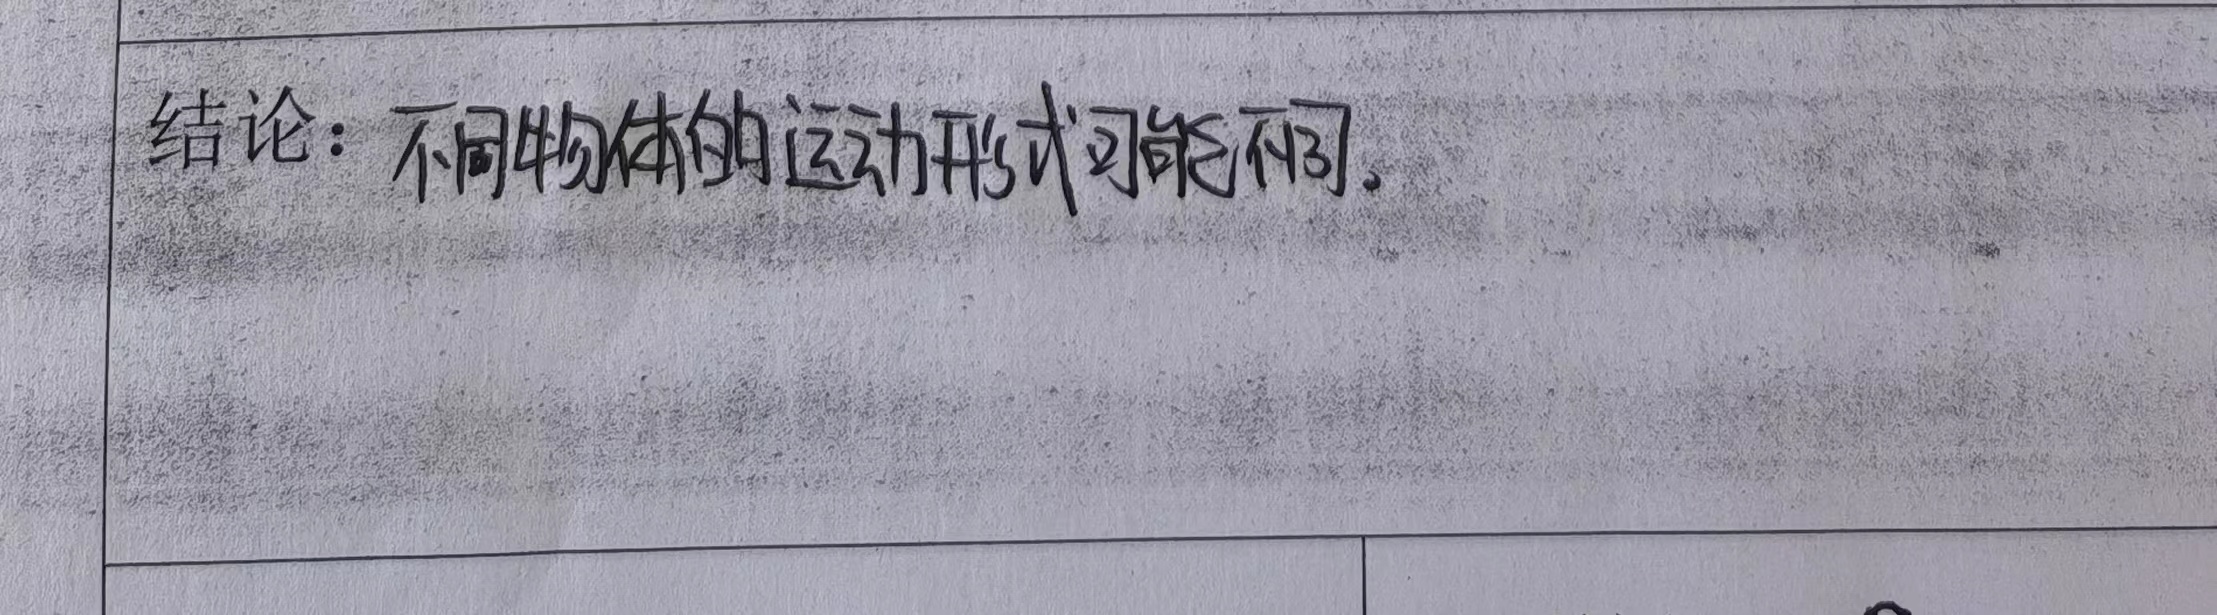 结论：不同物体的运动形式可能不同。